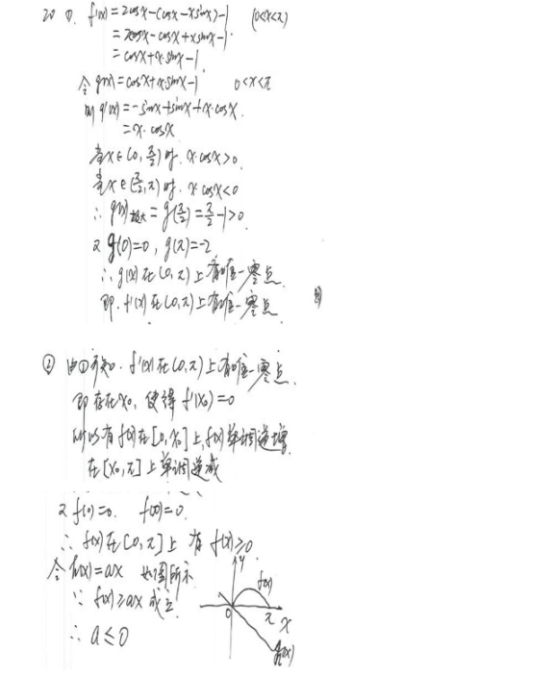 20 ①. f'(x)=2cosx-(cosx-xsinx)-1 (0<x<π)
=2cosx-cosx+xsinx-1
=cosx+x·sinx-1
令g(x)=cosx+x·sinx-1 0<x<π
则g'(x)=-sinx+sinx+x·cosx.
=x·cosx
当x∈(0,π/2)时. x·cosx>0.
当x∈(π/2,π)时. x cosx<0
∴ g(x)极大=g(π/2)=π/2-1>0
又g(0)=0, g(π)=-2
∴ g(x)在(0,π)上有唯一零点.
即. f'(x)在(0,π)上有唯一零点.
② 由①可知. f'(x)在(0,π)上有唯一零点.
即存在x₀, 使得f'(x₀)=0
所以有f(x)在[0,x₀]上,f(x)单调递增.
在[x₀,π]上单调递减
又f(0)=0. f(π)=0.
∴ f(x)在[0,π]上 有f(x)≥0
令h(x)=ax 如图所示
∵ f(x)≥ax成立
∴ a≤0
y
f(x)
0 π x